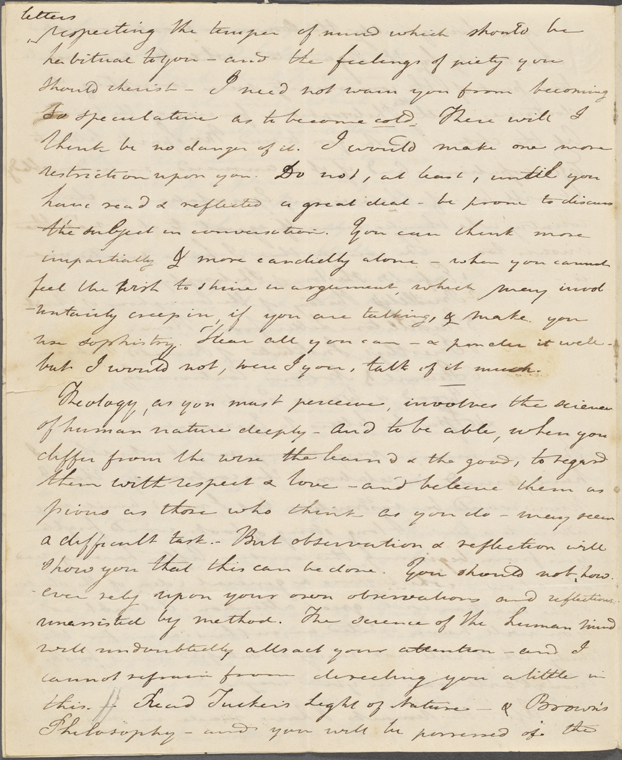 letters
respecting the temper of mind which should be
habitual to you – and the feelings of piety you
should cherish – I need not warn you from becoming
so speculative as to become cold. There will I
think be no danger of it. I would make one more
restriction upon you. Do not, at least, until you
have read & reflected a great deal – be prone to discuss
the subject in conversation. You can think more
impartially & more candidly alone – when you cannot
feel the wish to shine in argument, which may invol
-untarily creep in, if you are talking, & make you
use sophistry. Hear all you can – & ponder it well –
but I would not, were I you, talk of it much.
Theology, as you must perceive, involves the science
of human nature deeply – and to be able, when you
differ from the wise the learn'd & the good, to regard
them with respect & love – and believe them as
pious as those who think as you do – may seem
a difficult task. – But observation & reflection will
show you that this can be done. You should not, how-
ever rely upon your own observations and reflections
unassisted by method. The science of the human mind
will undoubtedly attract your attention – and I
cannot refrain from directing you a little in
this. – Read Tucker's Light of Nature – & Brown's
Philosophy – and you will be possessed of the